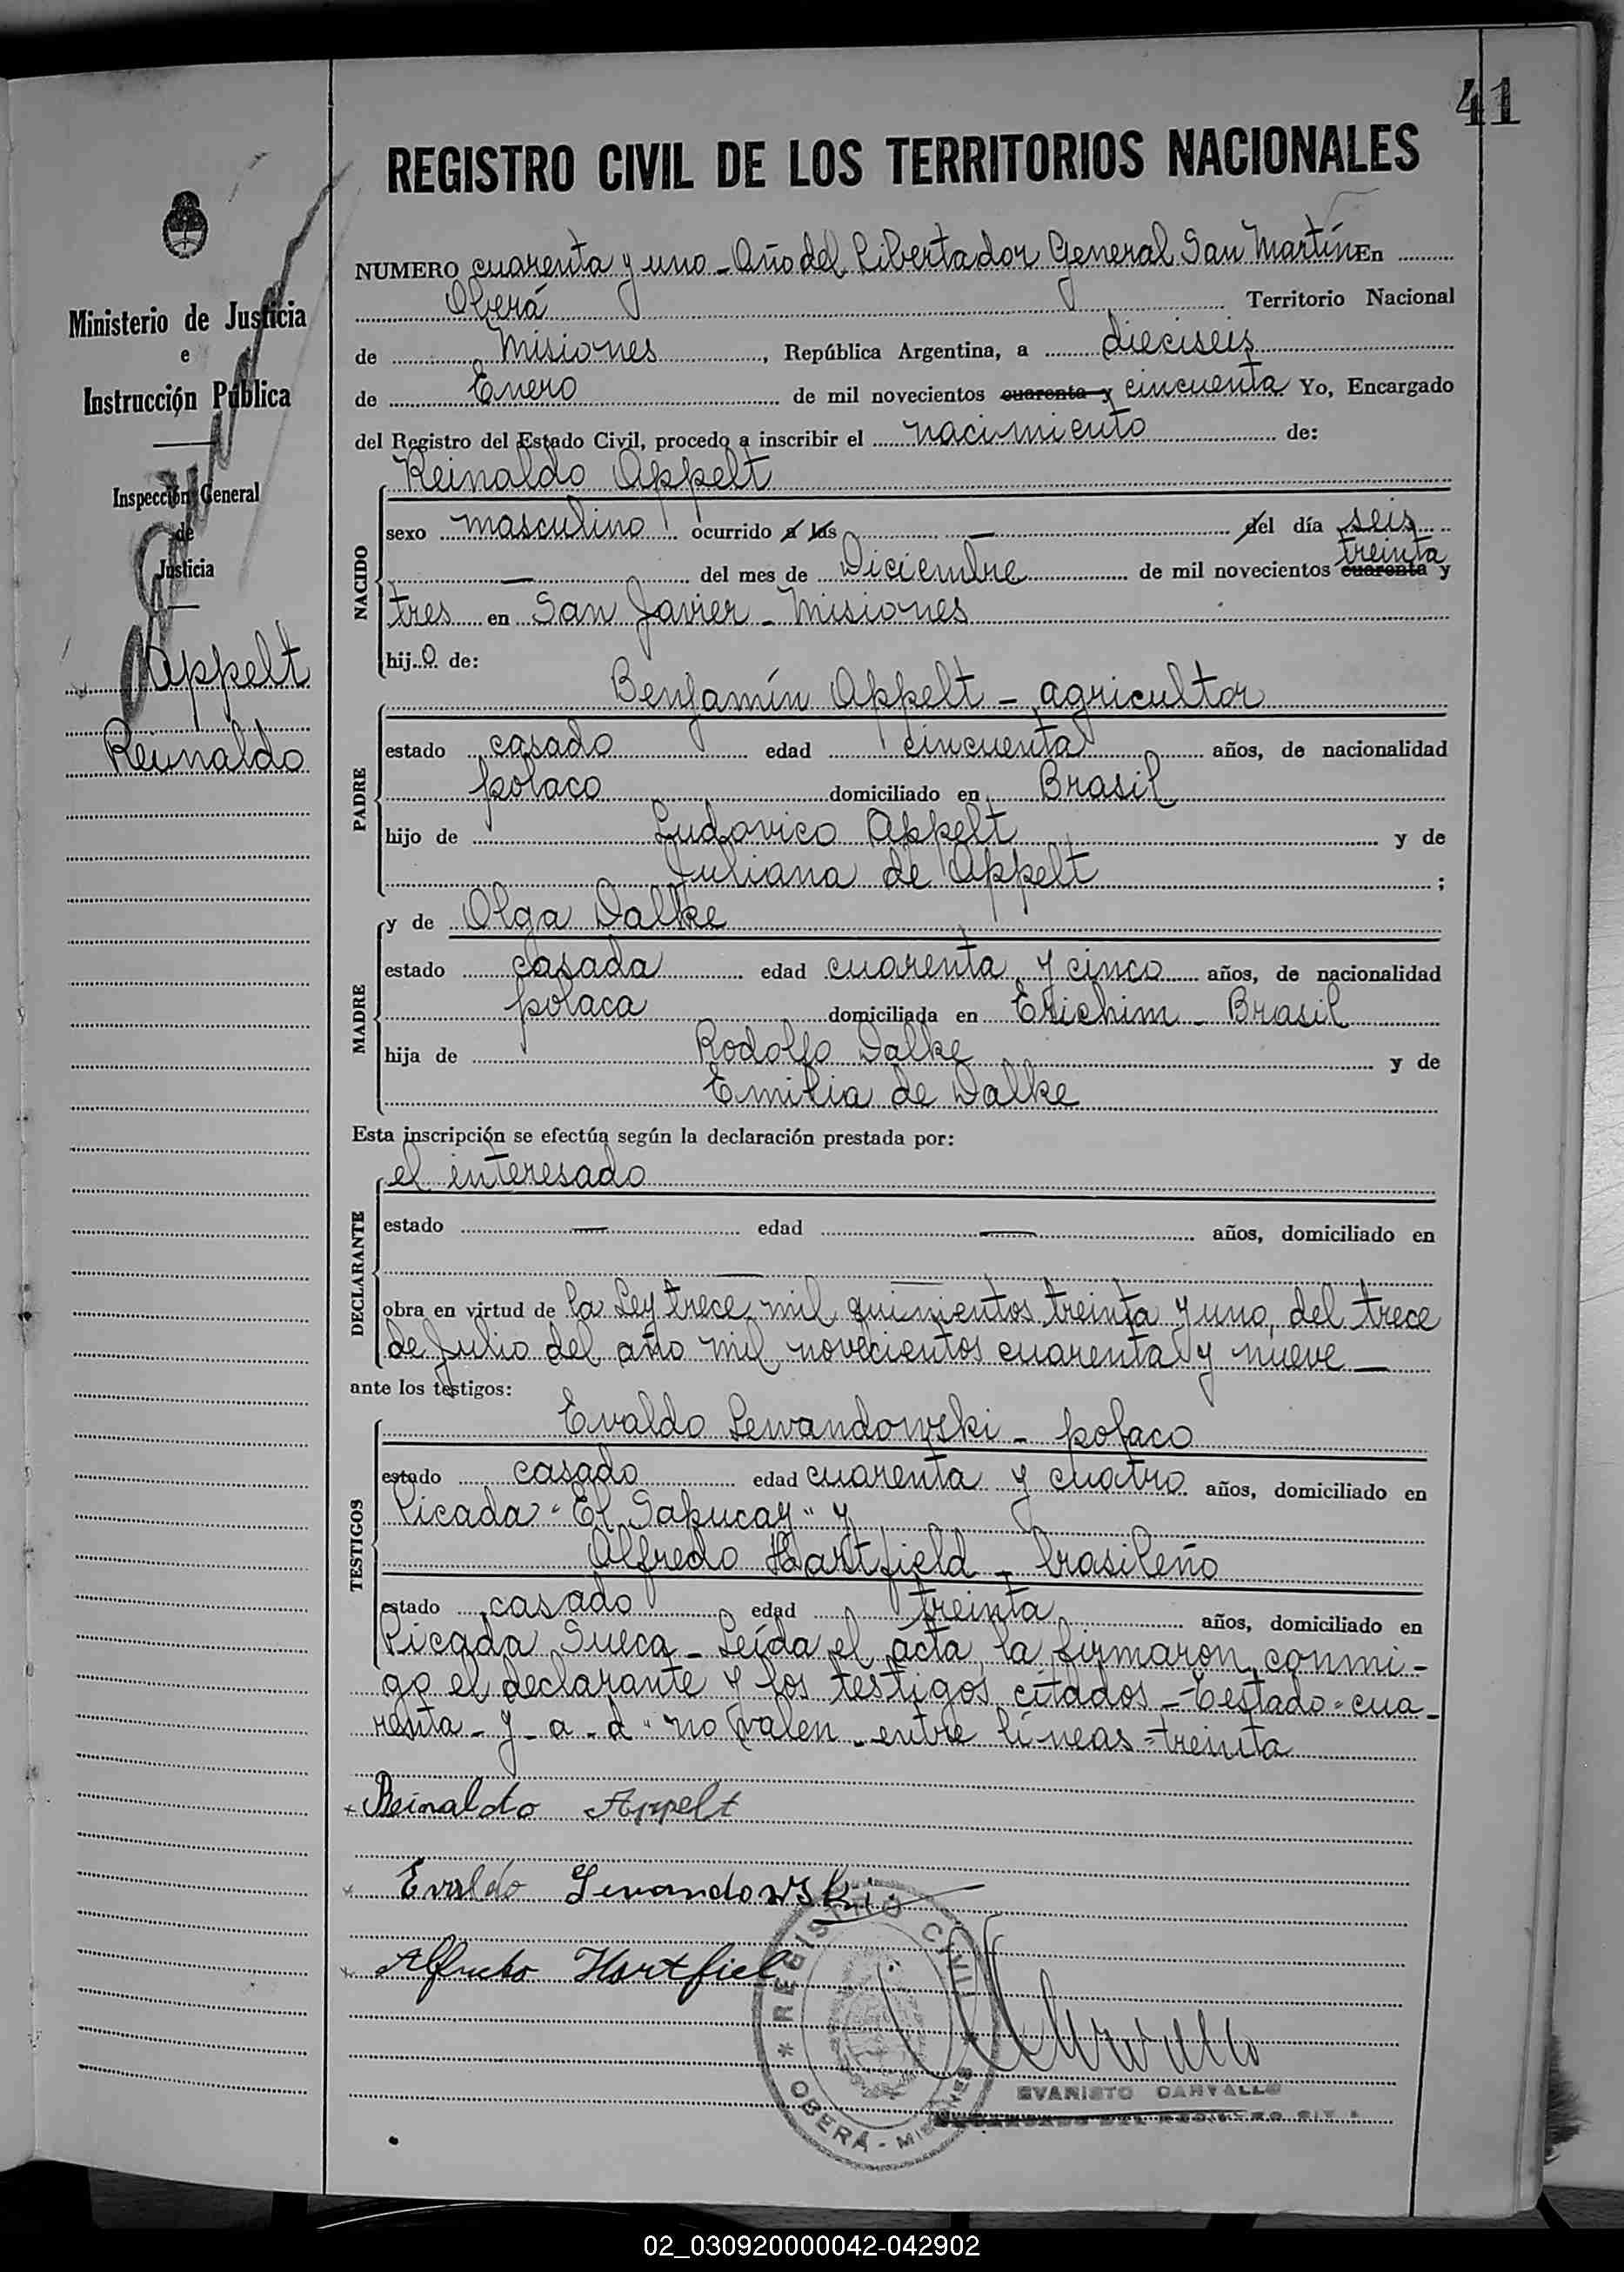 41
REGISTRO CIVIL DE LOS TERRITORIOS NACIONALES
Ministerio de Justicia
e
Instrucción Pública
Inspección General
de
Justicia
Appelt
Reinaldo
NUMERO cuarenta y uno - Año del Libertador General San Martín En
Oberá Territorio Nacional
de Misiones, República Argentina, a dieciseis
de Enero de mil novecientos cuarenta y cincuenta Yo, Encargado
del Registro del Estado Civil, procedo a inscribir el nacimiento de:
Reinaldo Appelt
NACIDO
sexo masculino ocurrido a las — del día seis
— del mes de Diciembre de mil novecientos cuarenta treinta y
tres en San Javier - Misiones
hijo de:
Benjamín Appelt - agricultor
PADRE
estado casado edad cincuenta años, de nacionalidad
polaco domiciliado en Brasil
hijo de Ludovico Appelt y de
Juliana de Appelt ;
y de Olga Dalke
MADRE
estado casada edad cuarenta y cinco años, de nacionalidad
polaca domiciliada en Erichim - Brasil
hija de Rodolfo Dalke y de
Emilia de Dalke
Esta inscripción se efectúa según la declaración prestada por:
el interesado
DECLARANTE
estado — edad — años, domiciliado en
— —
obra en virtud de la Ley trece mil quinientos treinta y uno, del trece
de Julio del año mil novecientos cuarenta y nueve —
ante los testigos:
Evaldo Lewandowski - polaco
TESTIGOS
estado casado edad cuarenta y cuatro años, domiciliado en
Picada "El Sapucay" y
Alfredo Hartfield - brasileño
estado casado edad treinta años, domiciliado en
Picada Sueca - Leída el acta, la firmaron conmi-
go el declarante y los testigos citados - Testado = cua-
renta - y - a - d " no valen - entre líneas = treinta
x Reinaldo Appelt
x Evaldo Lewandowski
x Alfredo Hartfiel
REGISTRO CIVIL
OBERÁ - MISIONES
EVARISTO CARVALLO
ENCARGADO DEL REGISTRO CIVIL
02_030920000042-042902